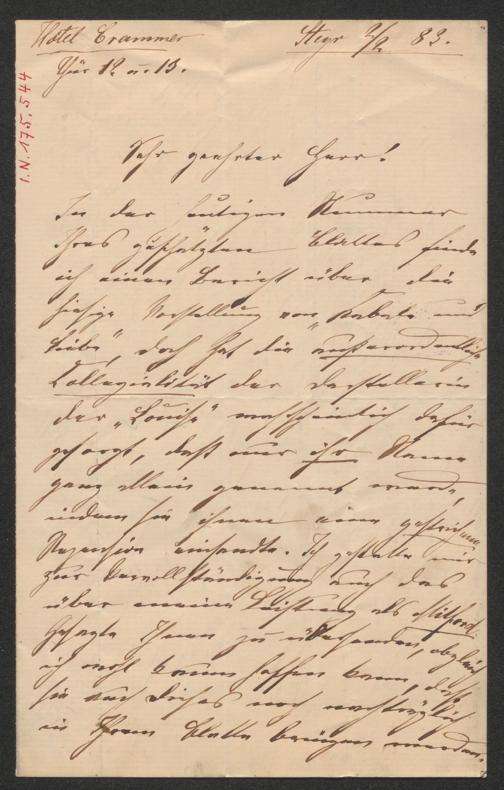 Hotel Crammer Steyr 2/2 83.
Thür 12 u. 13.
I.N. 175.544
Sehr geehrter Herr!
In der heutigen Nummer
Ihres geschätzten Blattes finde
ich einen Bericht über die
hiesige Vorstellung von „Kabale und
Liebe", doch hat die außerordentliche
Collegialität der Darstellerin
der „Louise" wahrscheinlich dafür
gesorgt, daß nur ihr Name
ganz allein genannt werde,
indem sie ihnen eine
Rezension einsandte. Ich gestatte mir
zur Vervollständigung auch das
über meine Leistung als Milford
Gesagte Ihnen zu übersenden, obgleich
ich wohl kaum hoffen kann, daß
Sie auch dieses noch nachträglich
in Ihrem Blatte bringen werden.